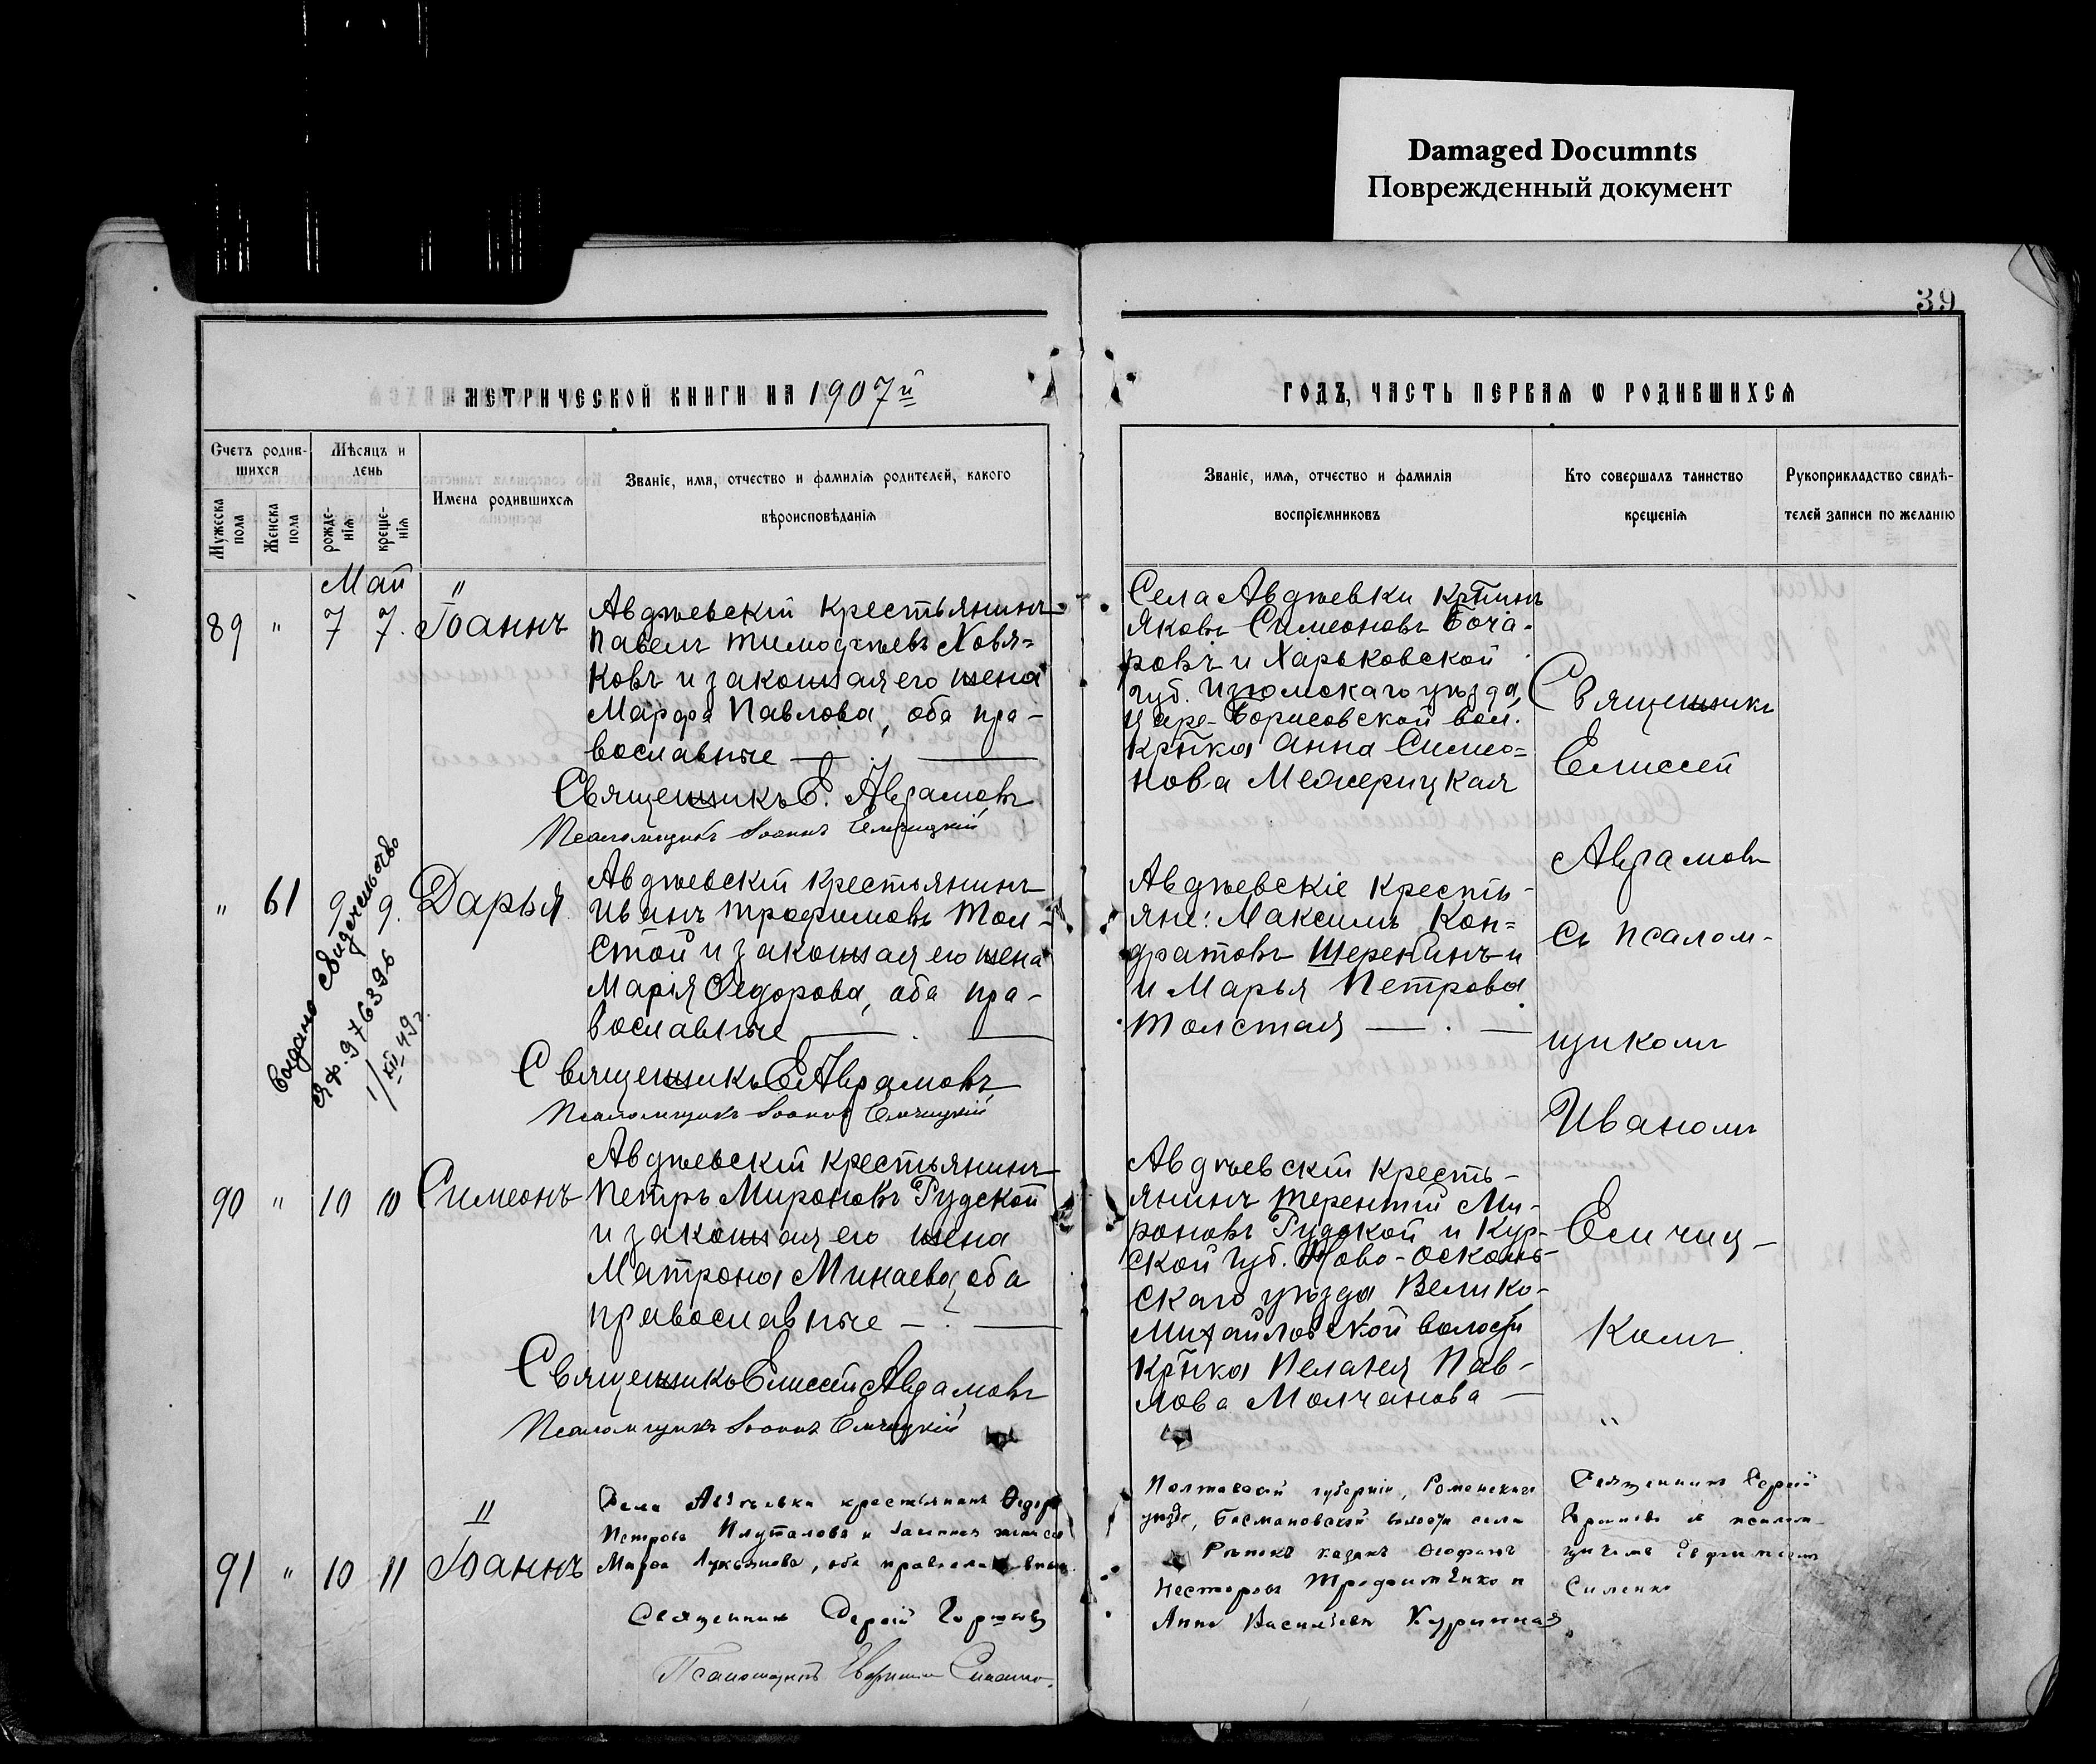 Damaged Documnts
Поврежденный документ
39
МЕТРИЧЕСКОЙ КНИГИ НА 1907й
ГОДЪ, ЧАСТЬ ПЕРВАЯ Ѡ РОДИВШИХСЯ
Счетъ родив-
шихся
Мужеска пола
Женска пола
Мѣсяцъ и
день
рожде-
нія
креще-
нія
Имена родившихся
Званіе, имя, отчество и фамилія родителей, какого
вѣроисповѣданія
Званіе, имя, отчество и фамилія
воспріемниковъ
Кто совершалъ таинство
крещенія
Рукоприкладство свидѣ-
телей записи по желанію
Май
89 " 7 7. Іоаннъ
Авдѣевскій крестьянинъ
Павелъ Тимофѣевъ Ховя=
ковъ и законная его жена
Марфа Павлова, оба пра-
вославные
Священникъ Е. Авдамовъ
Псаломщикъ Іоаннъ Емчицкій
Села Авдѣевки кр̃нинъ
Яковъ Симеоновъ Боча-
ровъ и Харьковской
губ. Изюмскаго уѣзда,
Царе-Борисовской вол.
кр̃нка Анна Симео=
нова Межерицкая
" 61 9 9. Дарья
Выдано свидетельство
ЯФ. 976396
1/XII 49 г.
Авдѣевскій крестьянинъ
Иванъ Трофимовъ Тол-
стой и законная его жена
Марія Ѳедорова, оба пра-
вославные
Священникъ Е. Авдамовъ
Псаломщикъ Іоаннъ Емчицкій
Авдѣевскіе кресть-
яне: Максимъ Кон=
дратовъ Шеребинъ и
и Марья Петрова
Толстая
90 " 10 10 Симеонъ
Авдѣевскій крестьянинъ
Петръ Мироновъ Рудской
и законная его жена
Матрона Минаева, оба
православные
Священникъ Елисей Авдамовъ
Псаломщикъ Іоаннъ Емчицкій
Авдѣевскій кресть-
янинъ Терентій Ми-
роновъ Рудской и Кур-
ской губ. Ново-Осколь-
скаго уѣзда Велико-
Михайловской волости
кр̃нка Пелагея Пав-
лова Молчанова
Священникъ
Елисей
Авдамовъ
съ псалом-
щикомъ
Иваномъ
Емчиц-
кимъ
"
91 " 10 11 Іоаннъ
Села Авдѣевки крестьянинъ Ѳедоръ
Петровъ Плуталовъ и законная жена его
Марѳа Лукьянова, оба православные
Священникъ Сергій
Псаломщикъ Евфимій Силенко.
Полтавской губерніи, Роменскаго
уѣзда, Басмановской волости села
казакъ Ѳеофанъ
Несторовъ Трофименко и
Анна Васильева Курипная
Священникъ Сергій
и псалом-
щикомъ Евфиміемъ
Силенко